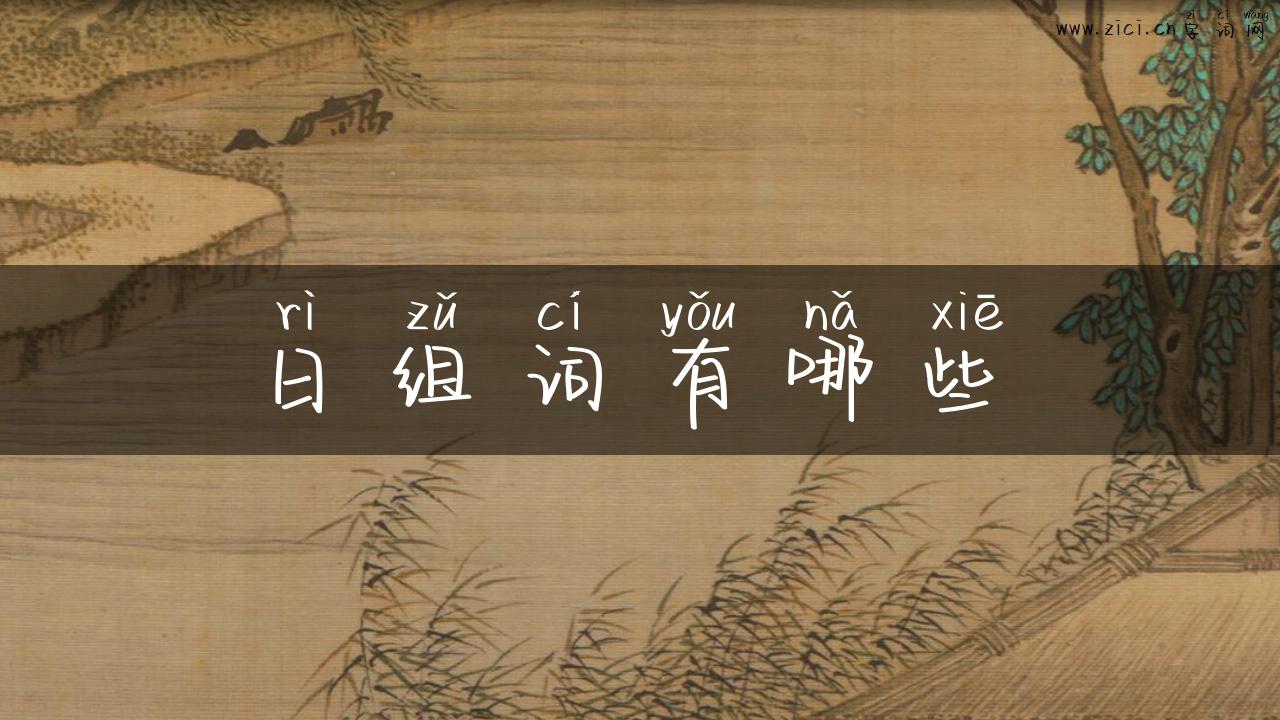 zì cí wǎng
www.zici.cn字词网
rì zǔ cí yǒu nǎ xiē
日组词有哪些